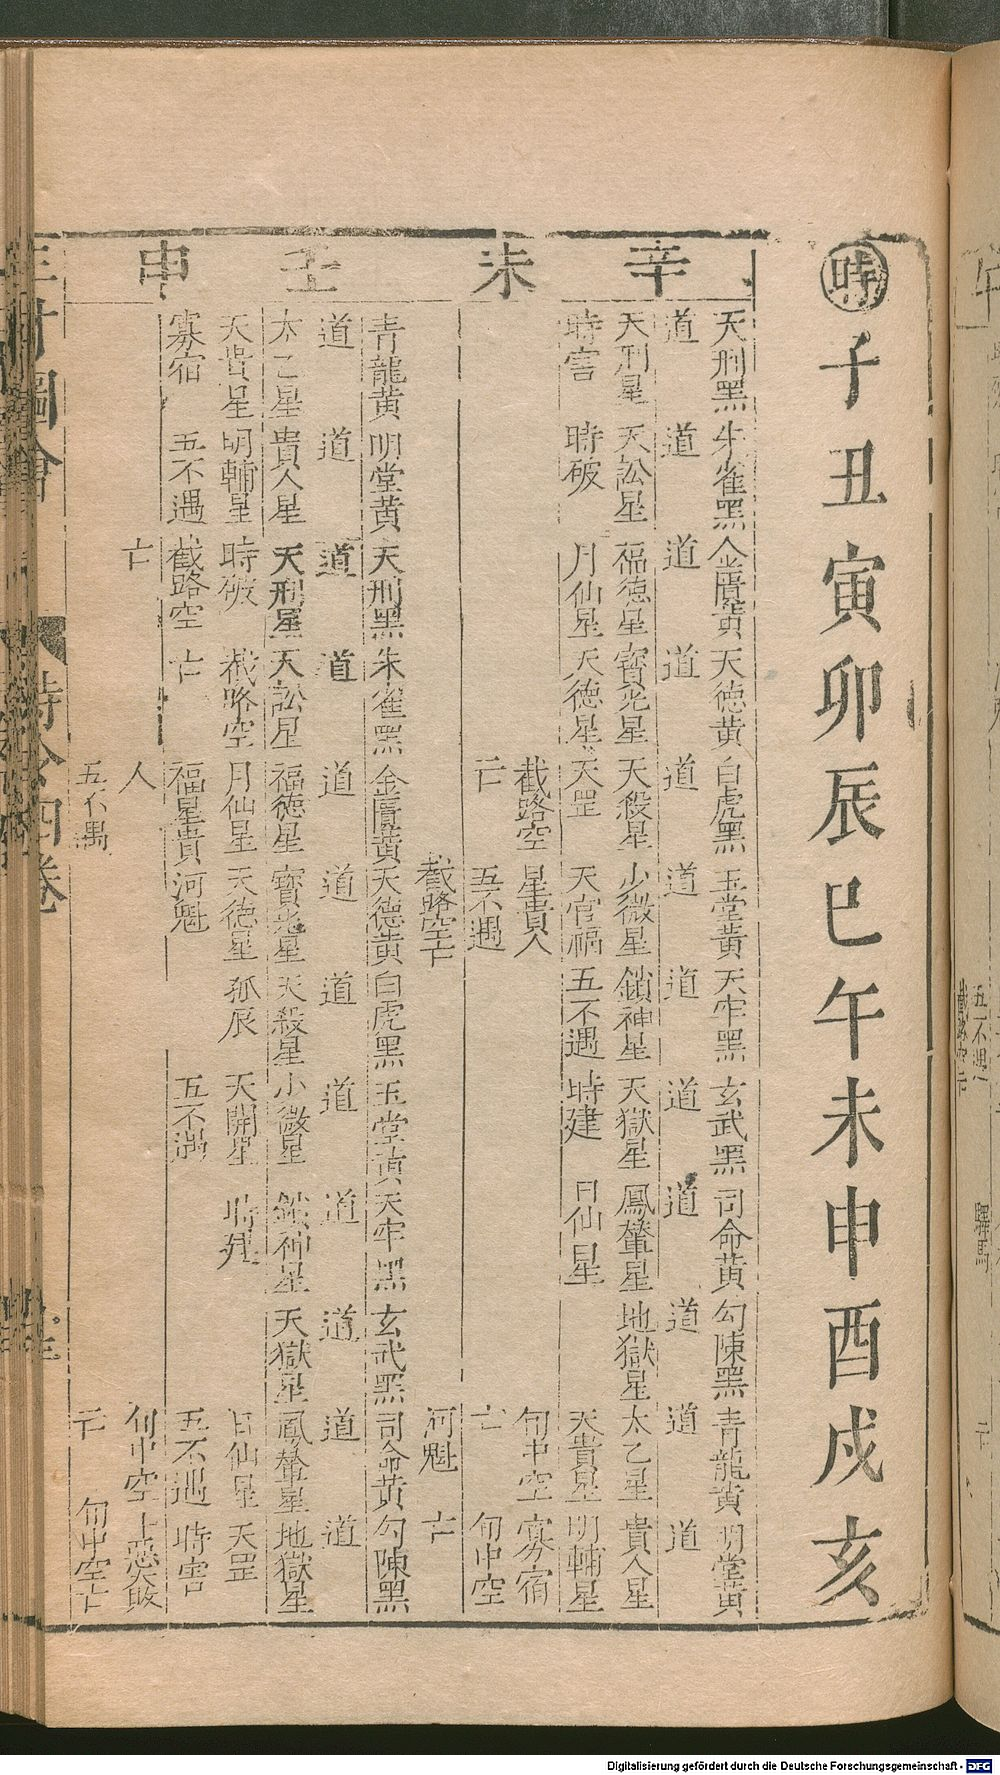 時子丑寅卯辰巳午未申酉戌亥
辛未
天刑黑朱雀黑金匱黃天德黃白虎黑玉堂黃天牢黑玄武黑司命黃勾陳黑青龍黃明堂黃
道道道道道道道道道道道道
天刑星天訟星福德星寳光星天殺星少微星鎖神星天獄星鳳輦星地獄星太乙星貴人星
時害時破月仙星天德星天罡天官福五不遇時建日仙星天貴星明輔星
截路空星貴人旬中空寡宿
亡五不遇亡旬中空
截路空亡河魁亡
壬申
青龍黃明堂黃天刑黑朱雀黑金匱黃天德黃白虎黑玉堂黃天牢黑玄武黑司命黃勾陳黑
道道道道道道道道道道道道
太乙星貴人星天刑星天訟星福德星寳光星天殺星少微星鎖神星天獄星鳳輦星地獄星
天貴星明輔星時破截路空月仙星天德星孤辰天開星時建日仙星天罡
寡宿五不遇截路空亡福星貴河魁五不遇五不遇時害
亡人旬中空十惡敗
五不遇亡旬中空亡
三才圖會
時令四卷
Digitalisierung gefördert durch die Deutsche Forschungsgemeinschaft - DFG